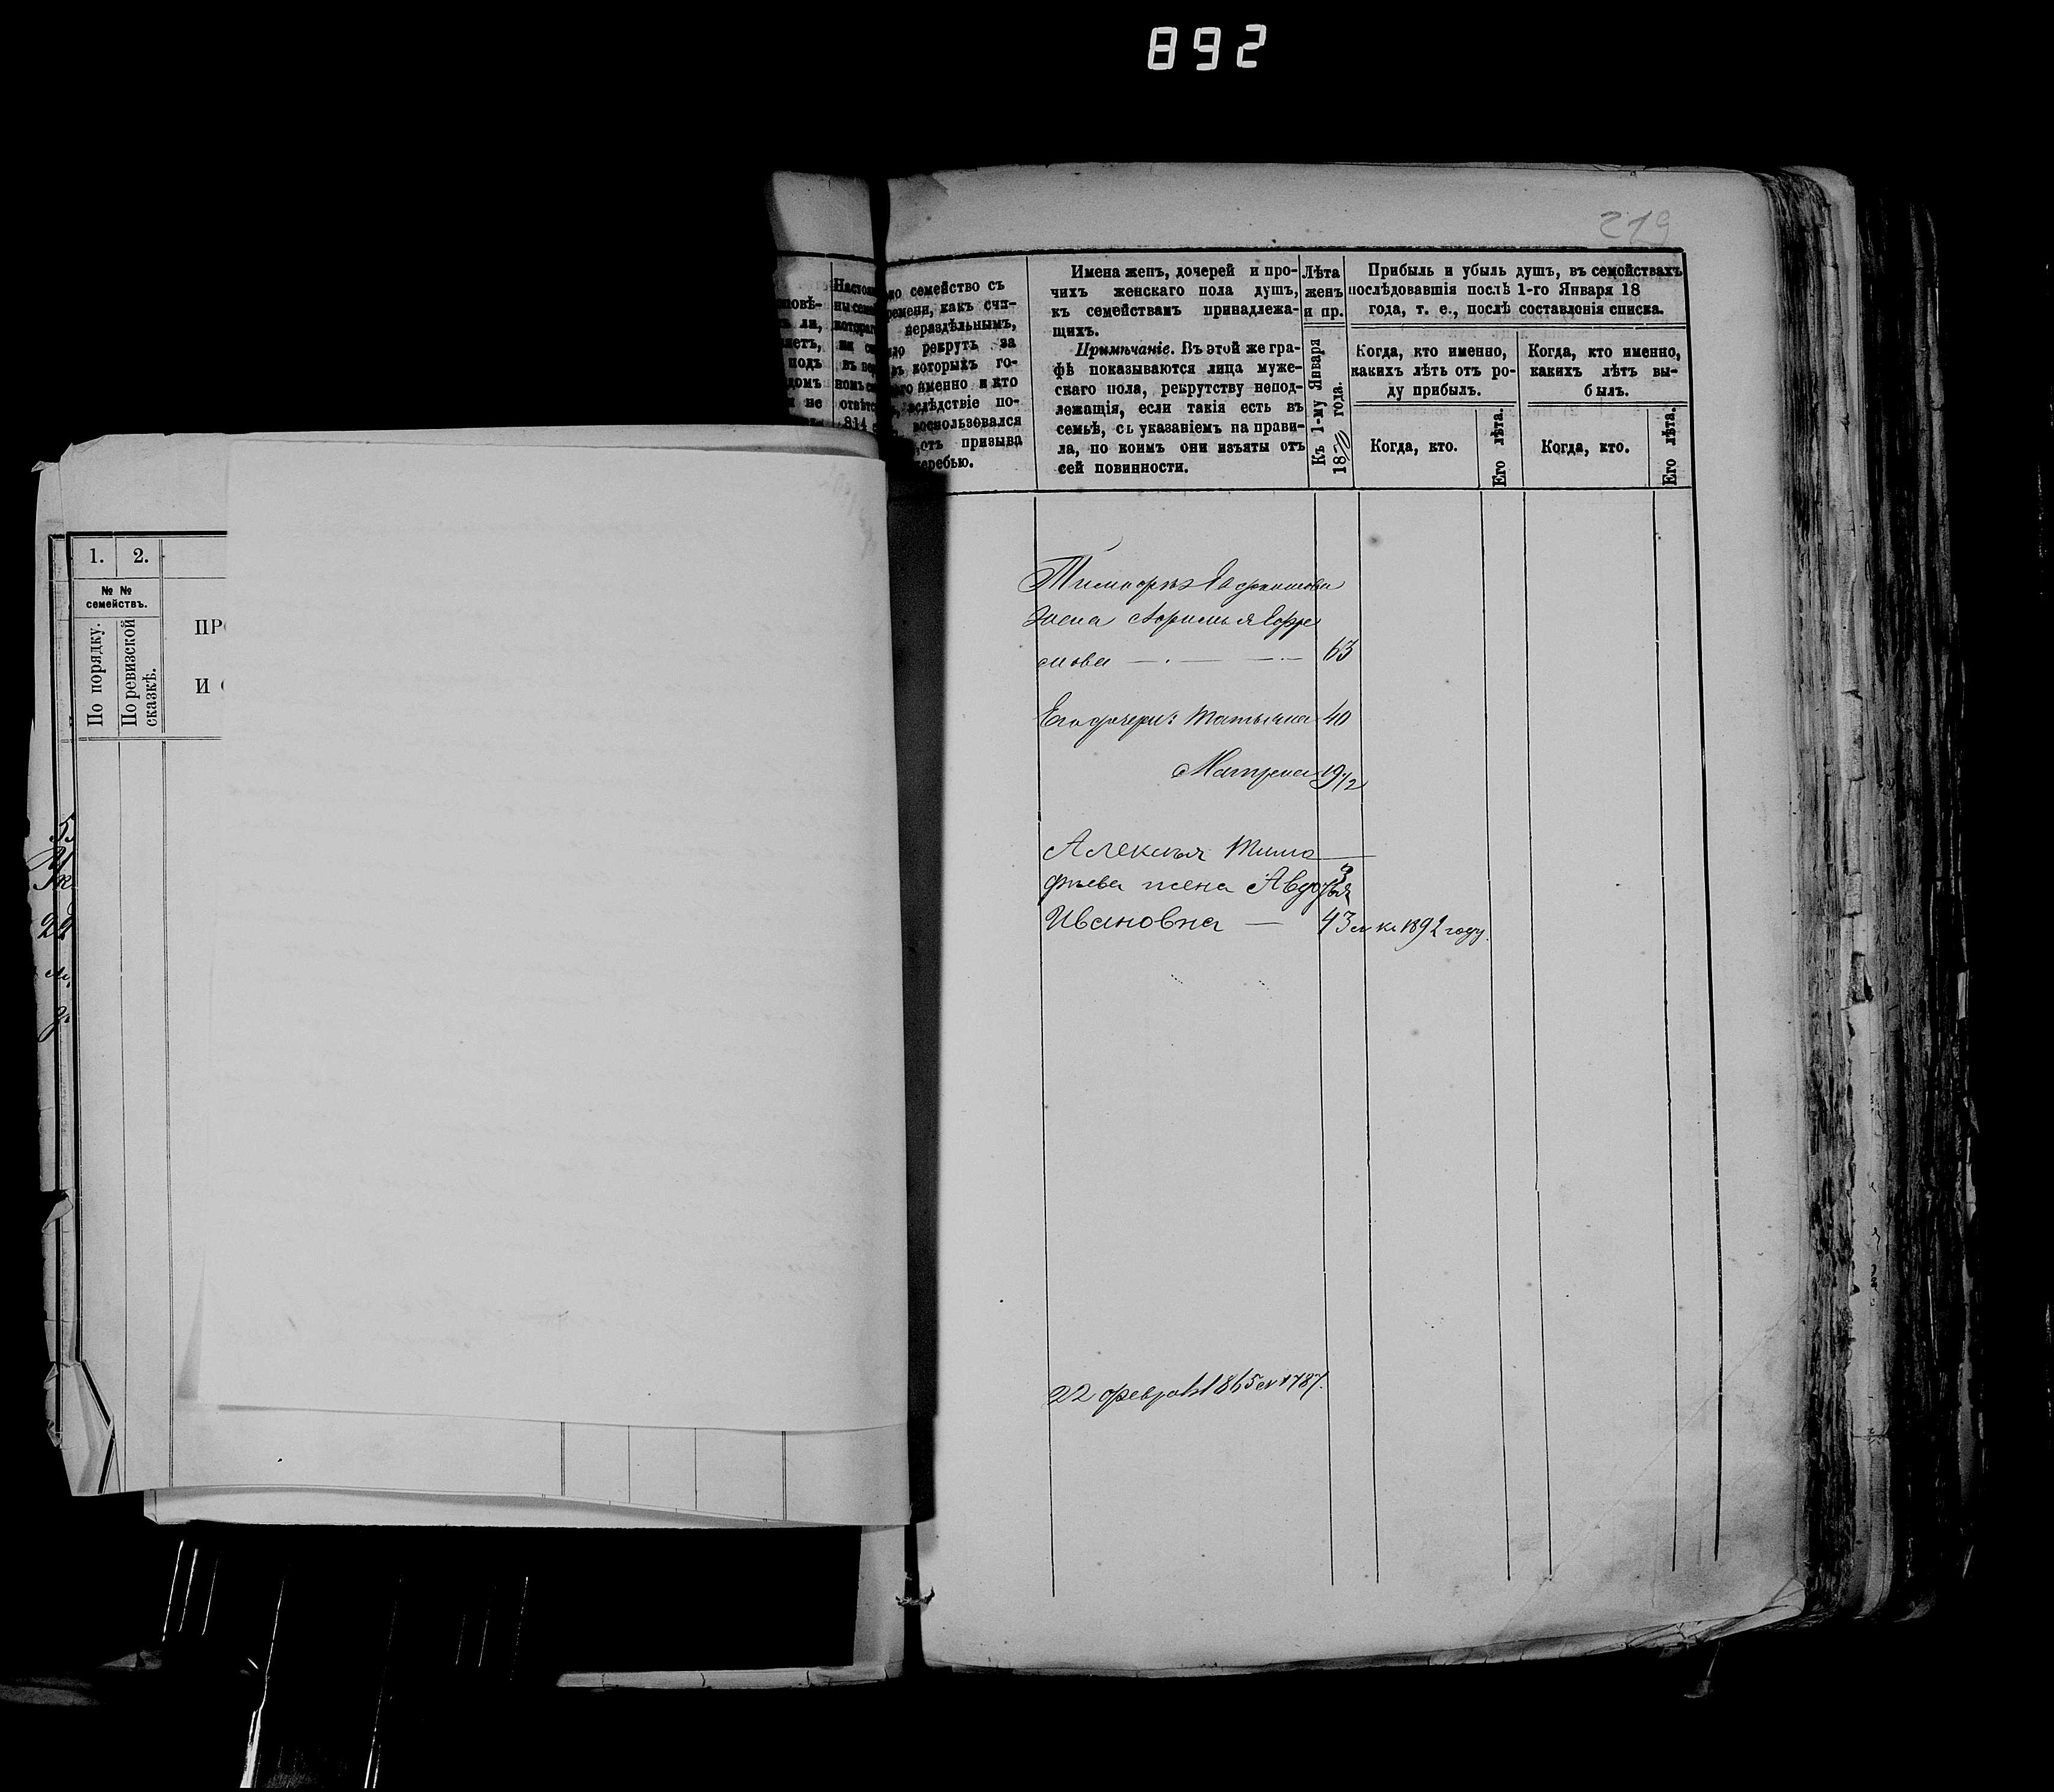 892
219
1. 2.
№ №
семействъ.
По порядку.
По ревизской
сказкѣ.
ПР
И
но семейство съ
ремени, какъ счи-
нераздѣльнымъ,
рекрутъ за
которыхъ го-
именно и кто
вслѣдствіе по-
воспользовался
отъ призыва
жеребью.
Имена женъ, дочерей и про-
чихъ женскаго пола душъ,
къ семействамъ принадлежа-
щихъ.
Примѣчаніе. Въ этой же гра-
фѣ показываются лица муже-
скаго пола, рекрутству непод-
лежащія, если такія есть въ
семьѣ, съ указаніемъ на прави-
ла, по коимъ они изъяты отъ
сей повинности.
Лѣта
женъ
и пр.
Къ 1-му Января
1870 года.
Прибыль и убыль душъ, въ семействахъ
послѣдовавшія послѣ 1-го Января 18
года, т. е., послѣ составленія списка.
Когда, кто именно,
какихъ лѣтъ отъ ро-
ду прибылъ.
Когда, кто.
Его лѣта.
Когда, кто именно,
какихъ лѣтъ вы-
былъ.
Когда, кто.
Его лѣта.
жена
мова 63
Его дочери: Татьяна 40
Матрена 19 1/2
Алексѣя Тимо
фѣева жена Авдотья
Ивановна — 43 л къ 1892 году.
22 февраля 1865 № 1787.